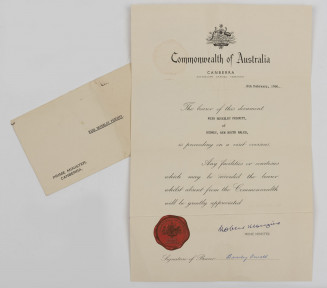 Commonwealth of Australia
CANBERRA
The bearer of this document
MISS BEVERLEY
of
SYDNEY, NEW SOUTH WALES,
is proceeding on a visit overseas.
Any facilities or assistance
which may be accorded the bearer
whilst absent from the Commonwealth
will be greatly appreciated.
PRIME MINISTER
Signature of Bearer
PRIME MINISTER,
CANBERRA.